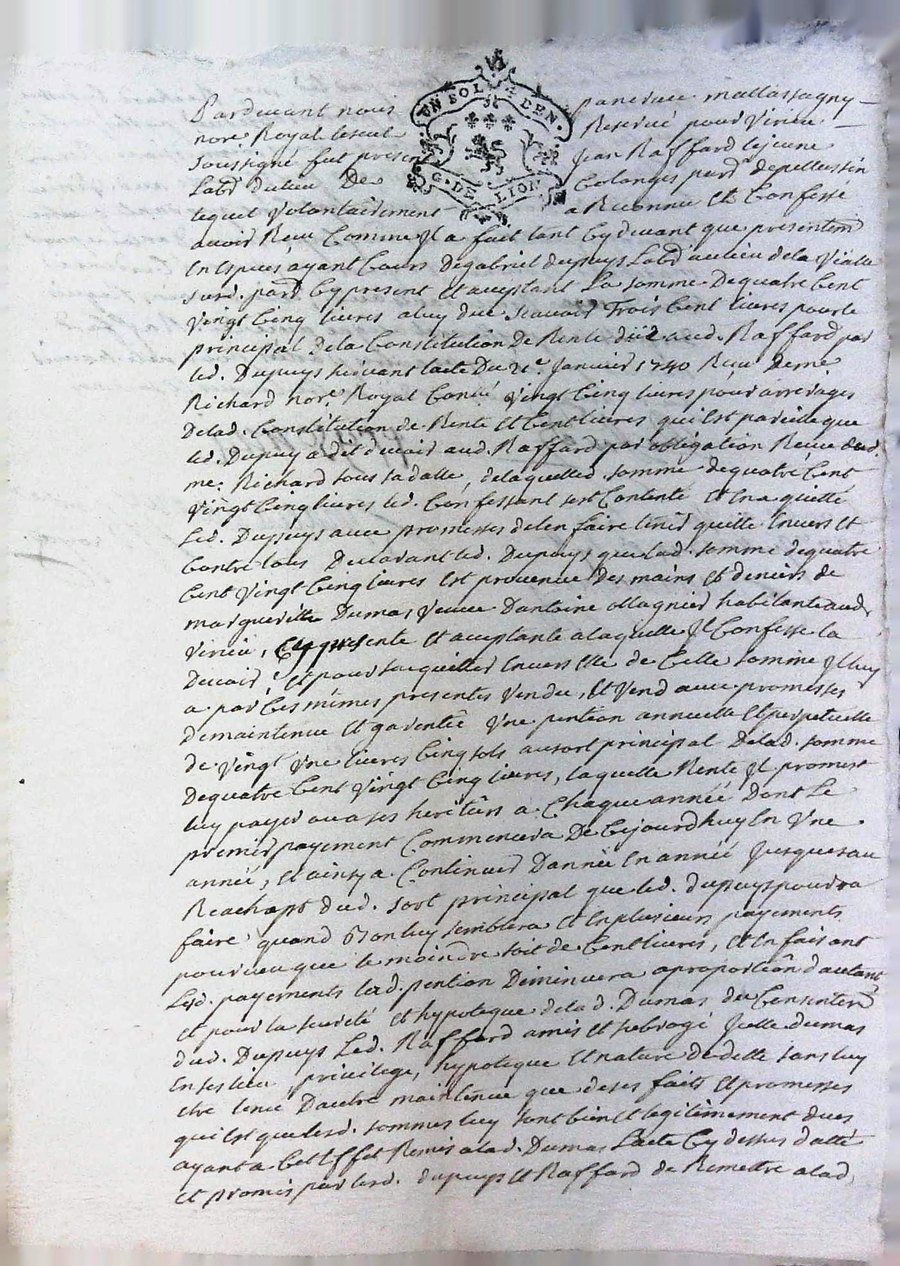 UN SOL 4 DEN.
G. DE LION
Pardevant nous pancrace mallassagny
nore. Royal et seul Reservé pour virieu
soussigné fut present Jean Raffard lejeune
Labr. du lieu De Colanges parr. depellussin
lequel volontairement a Reconnu et Confessé
avoir Reçu Comme Jl a fait tant Cy devant que presentem.
En Especes ayant Cours De gabriel dupuys Labr. au lieu dela Vialle
surd. parr. Cy present et aceptant La somme De quatre Cent
vingt Cinq livres a luy due scavoir Trois Cent livres pour le
principal De la Constitution de Rente düe aud. Raffard par
led. Dupuys suivant l'acte Du 21e. Janvier 1740 Reçu De me
Richard nore. Royal vingt Cinq livres pour arrerages
De lad. Constitution de Rente et Cent livres qu'il est pareille que
led. Dupuy a dit devoir aud. Raffard par obligation Recue dud.
me. Richard sous sa datte, de laquelle d. somme de quatre Cent
vingt Cinq livres led. Confessant s'est Contenté et en a quitté
Led. Dupuys avec promesses de l'en faire tenir quitte Envers et
Contre tous Declarant led. Dupuys que lad. somme de quatre
Cent vingt Cinq livres est provenue Des mains et deniers de
margueritte Dumas veuve D'antoine ollagnier habitante aud.
virieu, Cy presente et aceptante a laquelle Jl Confesse la
Devoir, et pour s'acquitter Envers elle de Celle somme Jl luy
a par Ces mêmes presentes vendu, et vend avec promesses
De maintenue et garentie une pention annuelle et perpetuelle
de vingt une livres Cinq sols au sort principal De lad. somme
De quatre Cent vingt Cinq livres, laquelle Rente Jl promest
luy payer ou a ses heritiers a Chaque année Dont Le
premier payement Commencera De Cejourd'huy En une
année, et ainsy a Continuer D'année en année Jusques au
Reachapt dud. sort principal que led. dupuys pourra
faire quand Bon luy semblera et En plusieurs payements
pourveu que le moindre soit de Cent livres, et En faisant
Lesd. payements lad. pention Diminuera a proportion d'autant
et pour la sureté et hypoteque de lad. Dumas du Consentem.
dud. Dupuys Led. Raffard a mis et subrogé Jcelle dumas
En ses lieu, privilege, hypoteque et nature de dette sans luy
etre tenu D'autre maintenue que de ses faits et promesses
qui est que lesd. sommes luy sont bien et legitimement dues
ayant a Cet Effet Remis a lad. Dumas L'acte Cy dessus datté
et promis par lesd. dupuys et Raffard de Remettre a lad.